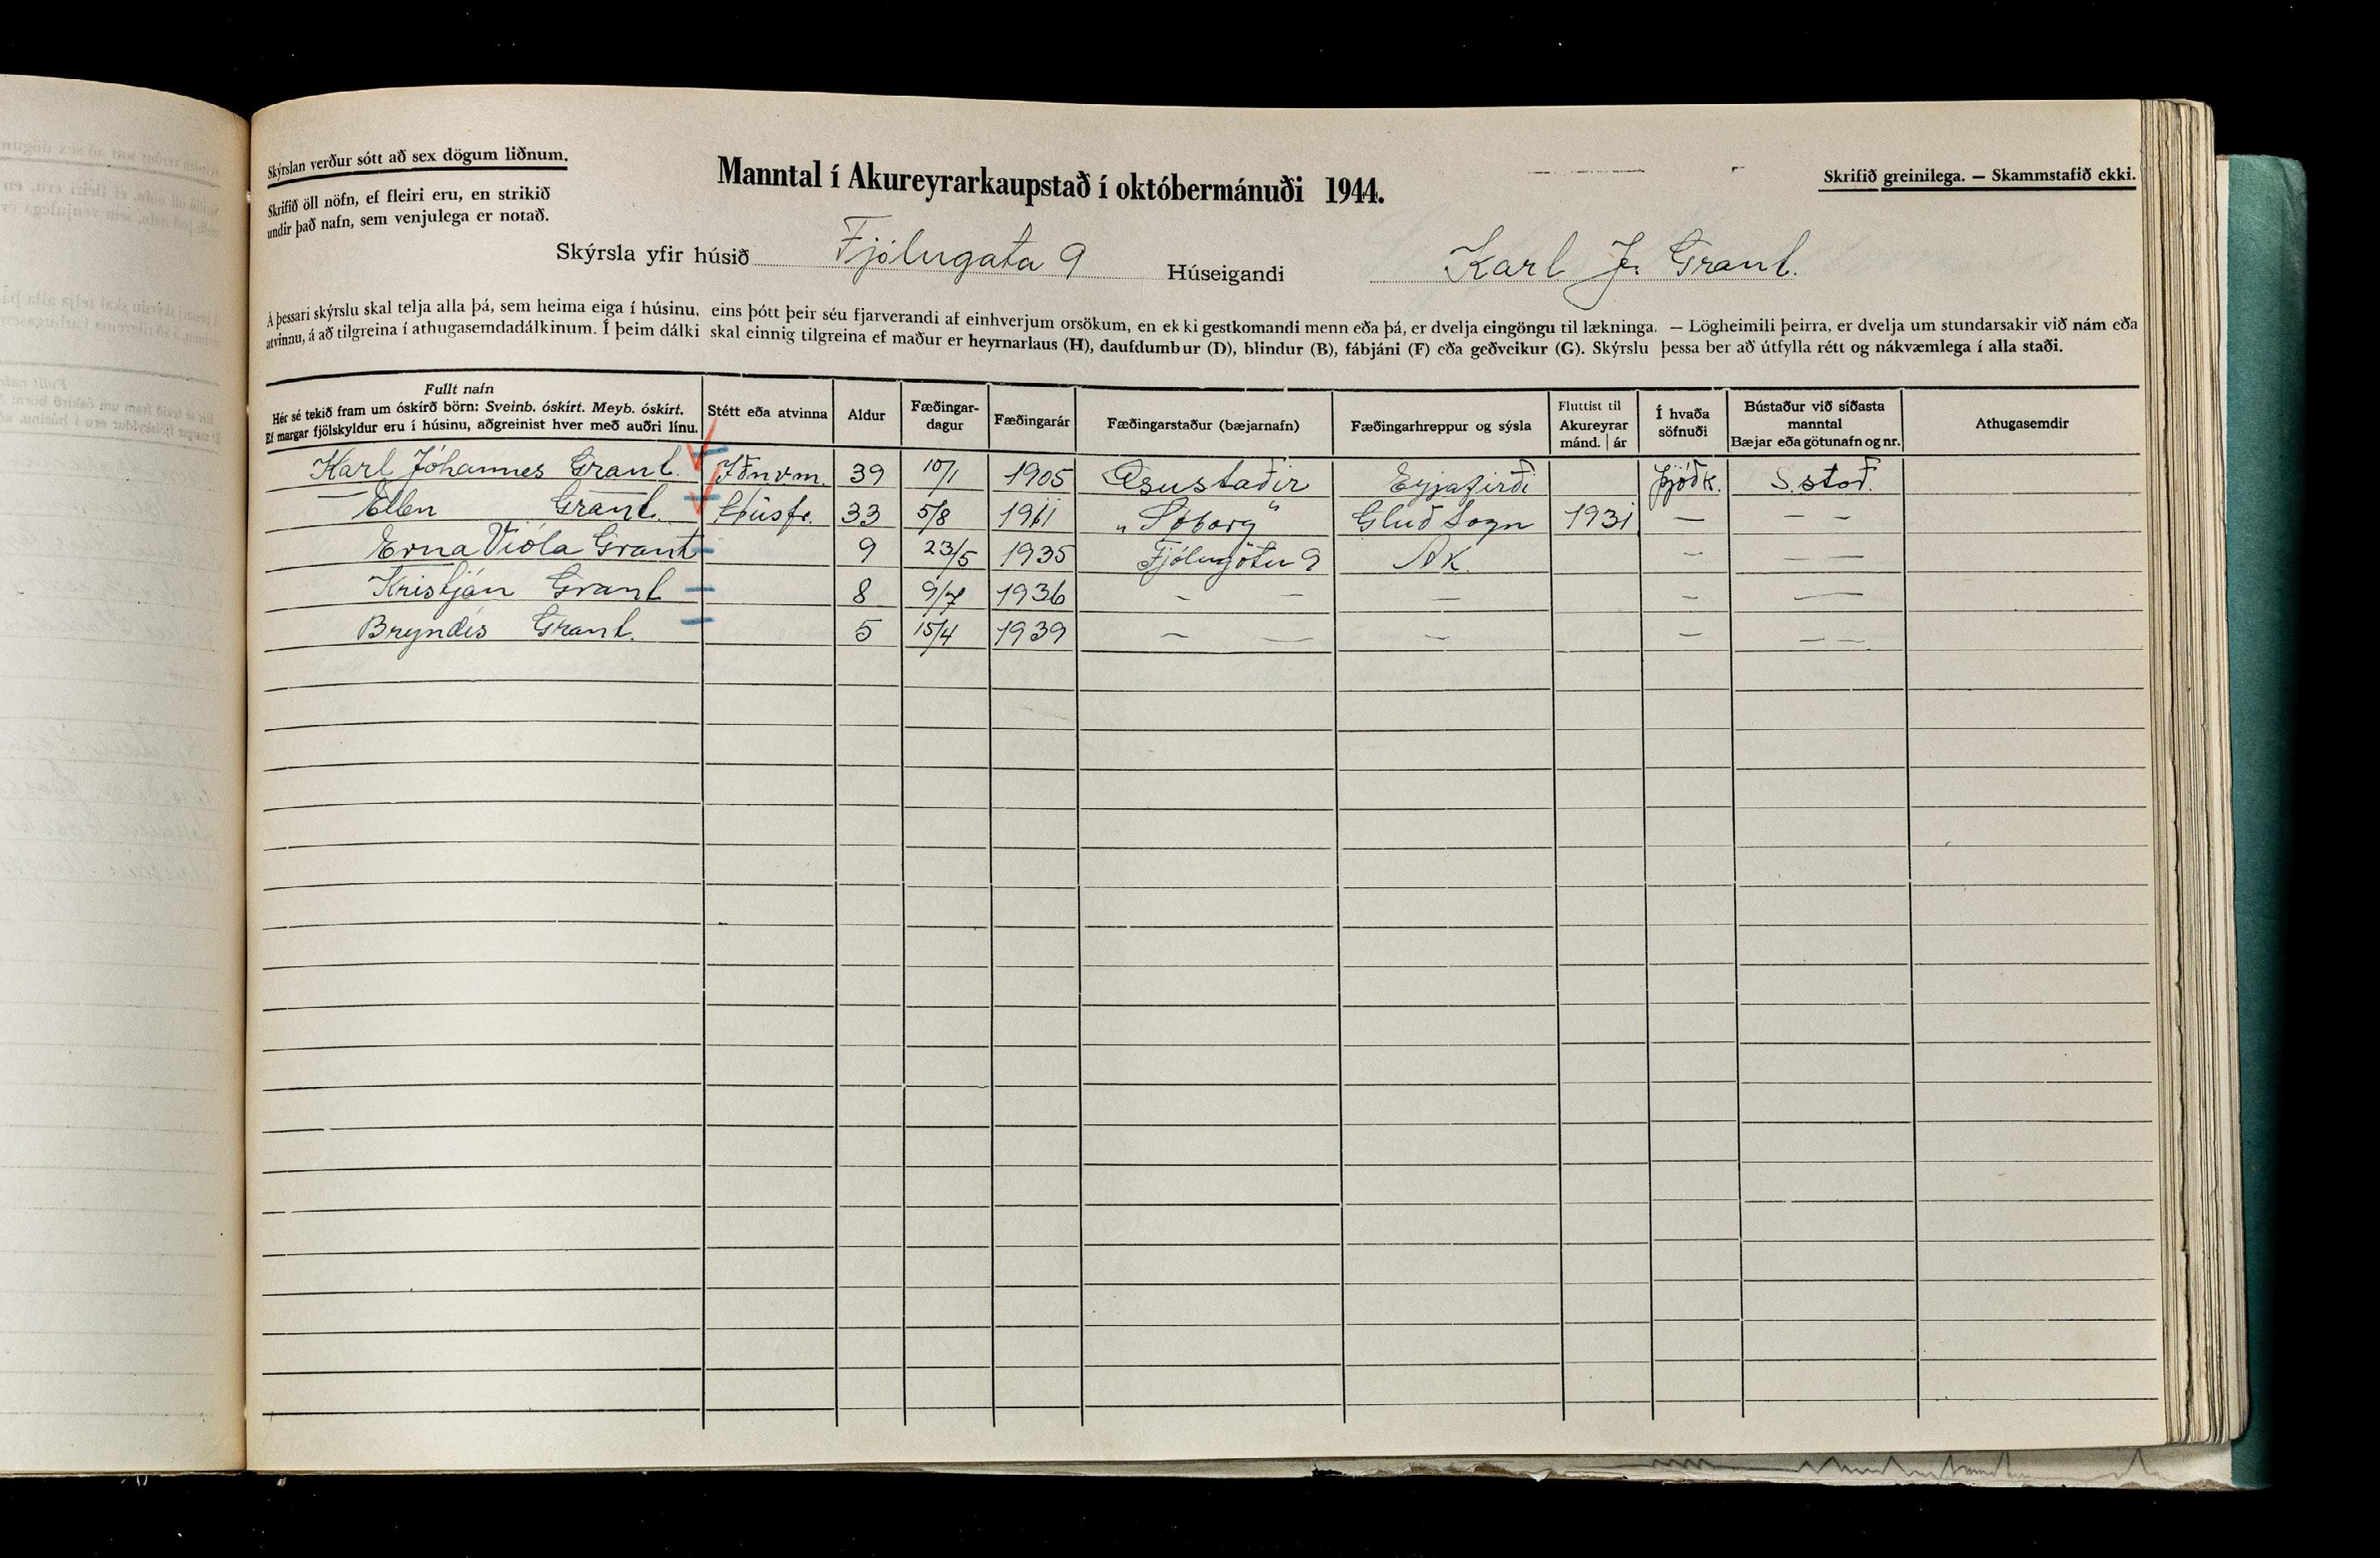 Skýrslan verður sótt að sex dögum liðnum.
Skrifið öll nöfn, ef fleiri eru, en strikið
undir það nafn, sem venjulega er notað.
Manntal í Akureyrarkaupstað í októbermánuði 1944.
Skrifið greinilega. — Skammstafið ekki.
Skýrsla yfir húsið Fjólugata 9 Húseigandi Karl J. Grant.
Á þessari skýrslu skal telja alla þá, sem heima eiga í húsinu, eins þótt þeir séu fjarverandi af einhverjum orsökum, en ekki gestkomandi menn eða þá, er dvelja eingöngu til lækninga. — Lögheimili þeirra, er dvelja um stundarsakir við nám eða
atvinnu, á að tilgreina í athugasemdadálkinum. Í þeim dálki skal einnig tilgreina ef maður er heyrnarlaus (H), daufdumbur (D), blindur (B), fábjáni (F) eða geðveikur (G). Skýrslu þessa ber að útfylla rétt og nákvæmlega í alla staði.
Fullt nafn
Hér sé tekið fram um óskírð börn: Sveinb. óskírt. Meyb. óskírt.
Ef margar fjölskyldur eru í húsinu, aðgreinist hver með auðri línu.
Stétt eða atvinna
Aldur
Fæðingar-
dagur
Fæðingarár
Fæðingarstaður (bæjarnafn)
Fæðingarhreppur og sýsla
Fluttist til
Akureyrar
mánd. | ár
Í hvaða
söfnuði
Bústaður við síðasta
manntal
Bæjar eða götunafn og nr.
Athugasemdir
Karl Jóhannes Grant. Iðnvm. 39 10/1 1905 Æsustaðir Eyjafirði Þjóðk. S. stað.
Ellen Grant. Húsfr. 33 5/8 1911 „Søborg" Glud Sogn 1931 — — —
Erna Víóla Grant 9 23/5 1935 Fjólugötu 9 Ak. — — —
Kristján Grant 8 9/7 1936 — — — — —
Bryndís Grant. 5 15/4 1939 — — — — — —